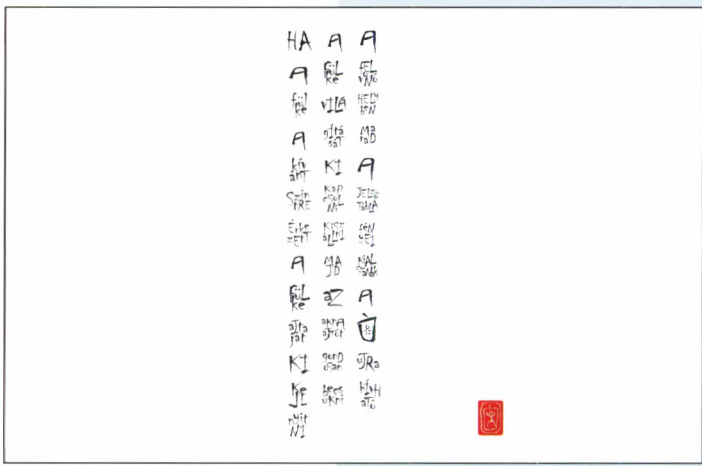 HA A fülke A kívánT SzintRE ÉrkezETT A fülke ajtaját KI KeLL nyitNI
A fülke vILÁ gításáT KI KapcsolNi KiSzáLLNI MAJD aZ aknaajtót gonDosan becsuKNi
A fELvonó HELyben MaraD A JELzőTábLA fényEI KiALszanak A úJRa hívHató